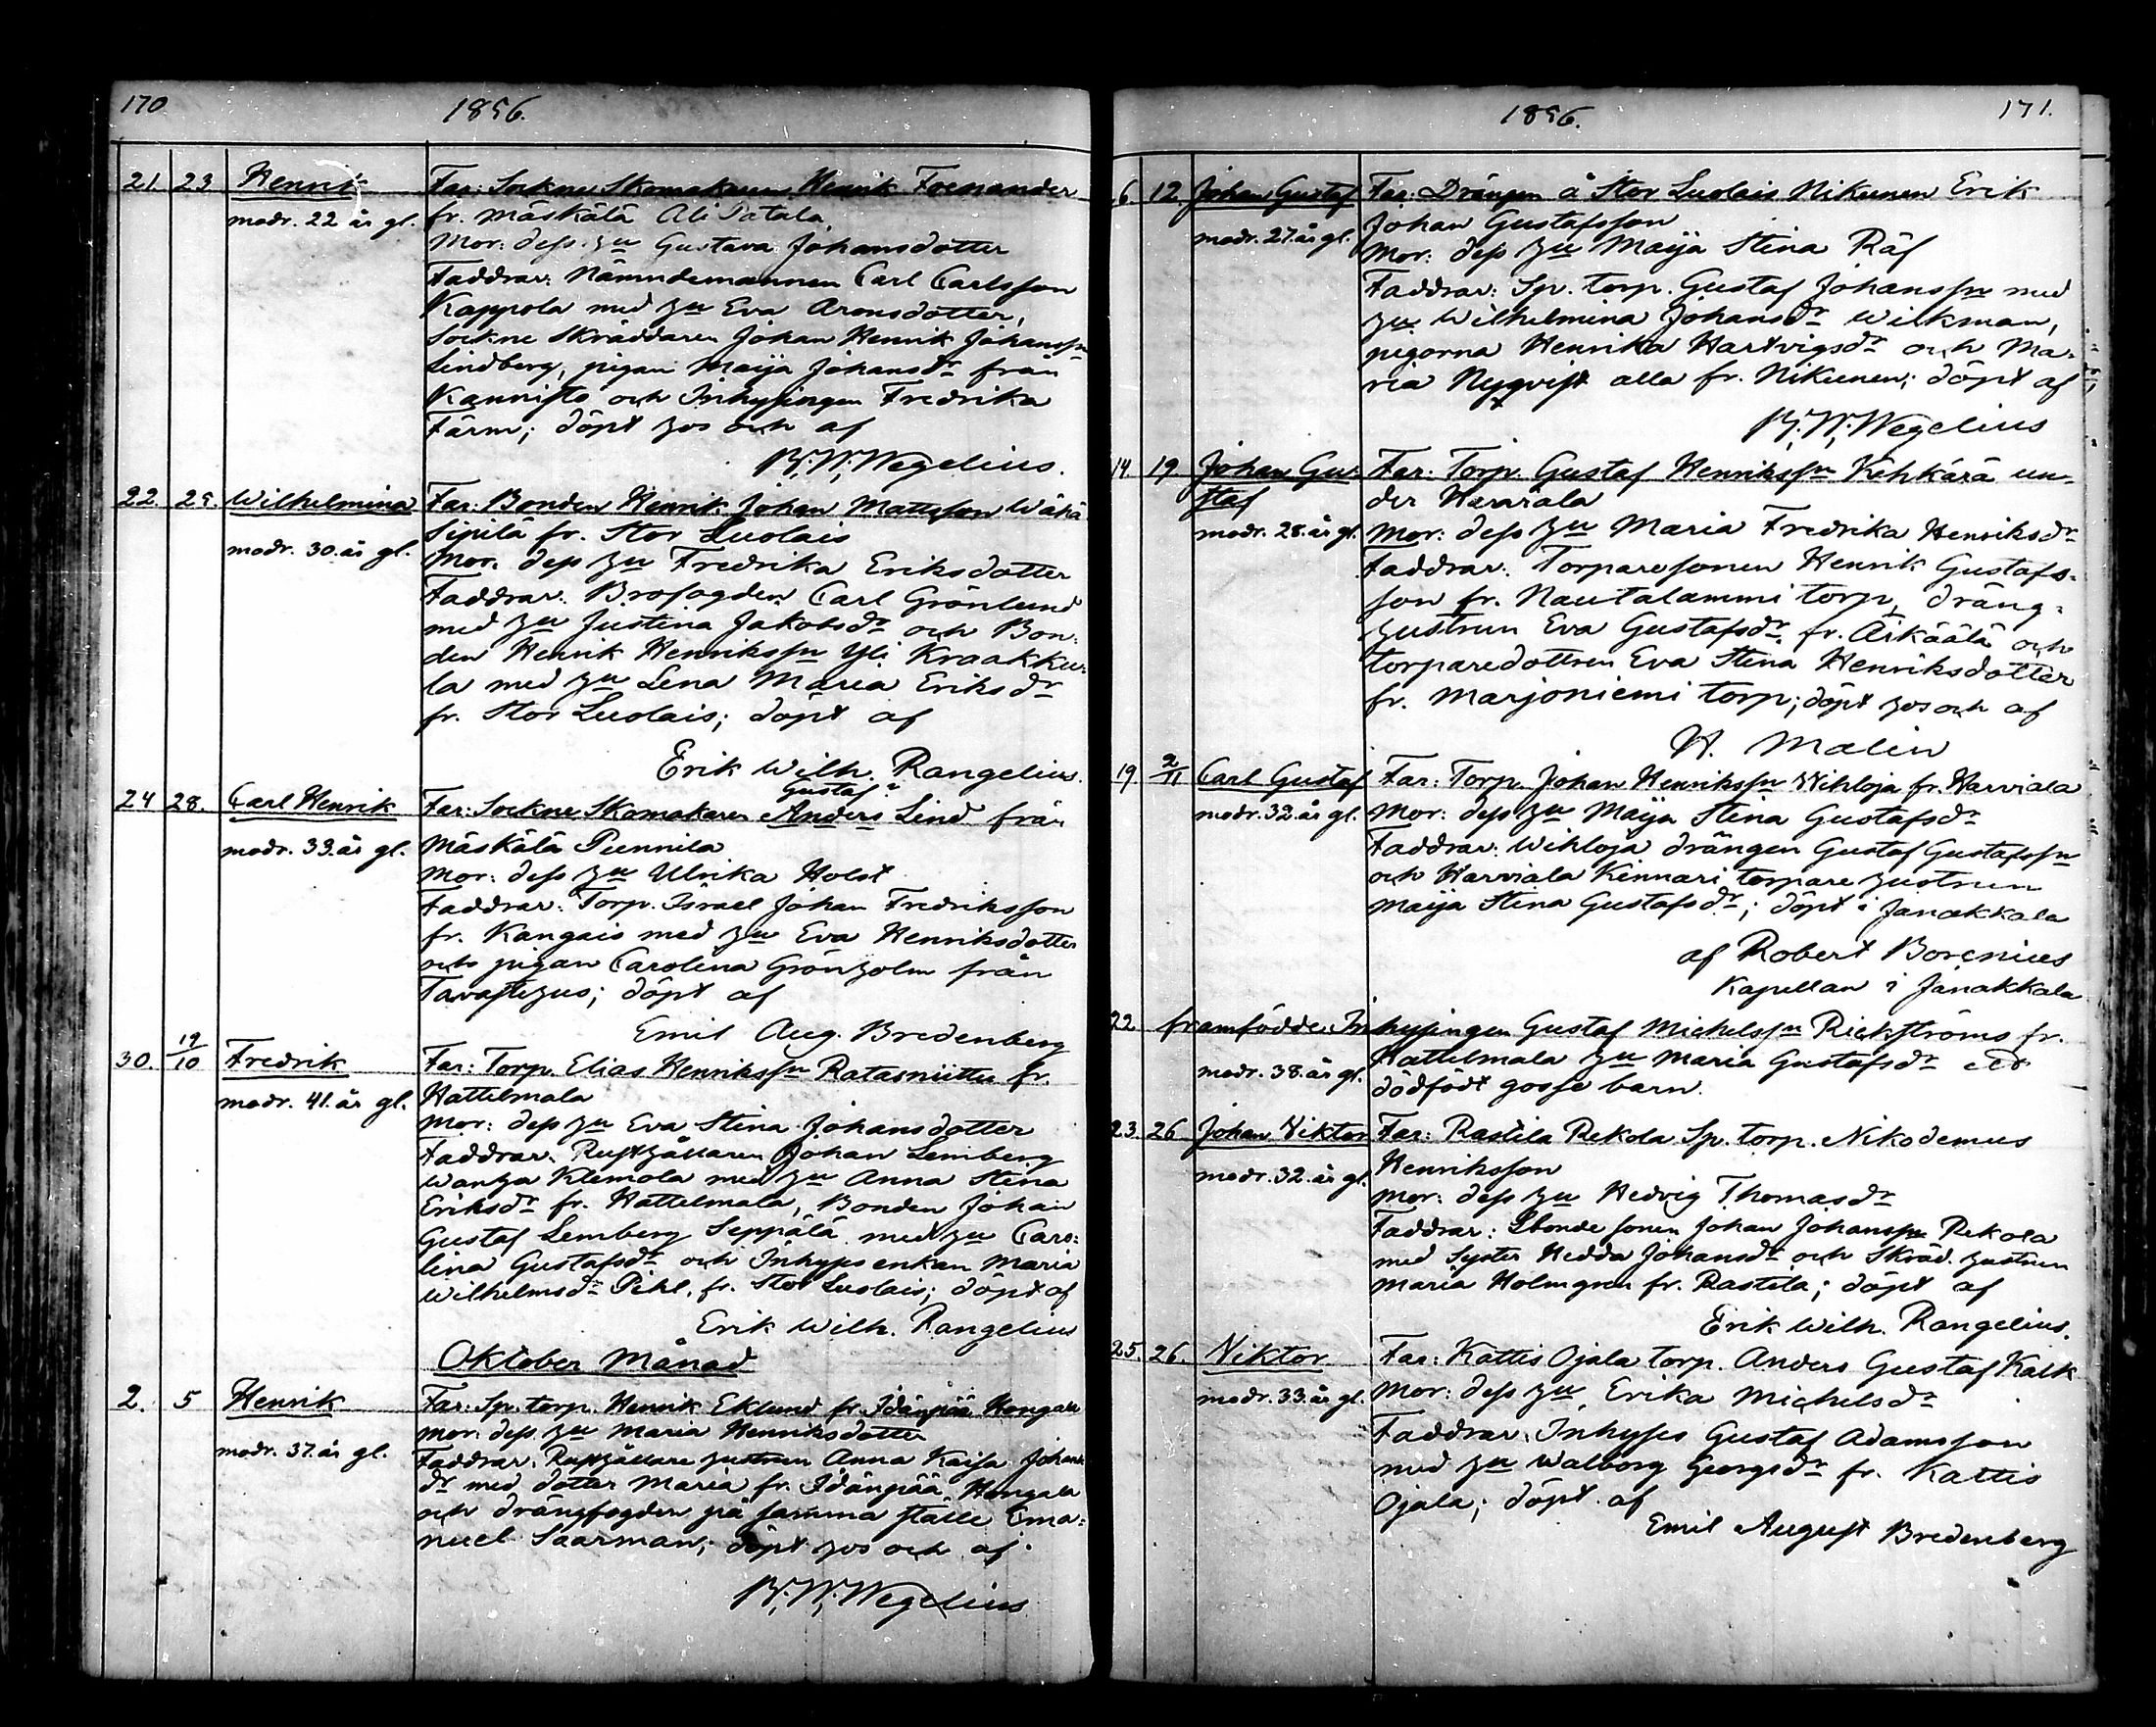 170
1856.
21. 23 Henrik Far: Sockne Skomakaren Henrik Forsander
modr. 22 år gl. fr. Mäskälä Ali Patala
Mor: dess hu Gustava Johansdotter
Faddrar: Nämndemannen Carl Carlsson
Kappola med hu Eva Aronsdotter,
Sockne Skräddaren Johan Henrik Johanssn
Lindberg, pigan Maija Johansdr från
Kannisto och Inhysingen Fredrika
Färm; döpt hos och af
B. W. Wegelius.
22 25. Wilhelmina Far: Bonden Henrik Johan Mattsson Wähä
Sipilä fr. Stor Luolais
modr. 30. år gl. Mor. dess hu Fredrika Eriksdotter
Faddrar: Brofogden Carl Grönlund
med hu Justina Jakobsdr och Bon-
den Henrik Henrikssn Yli Kraakku-
la med hu Lena Maria Eriksdr
fr. Stor Luolais; döpt af
Erik Wilh. Rangelius.
Gustaf
24 28. Carl Henrik Far: Sockne Skomakaren Anders Lind från
modr. 33. år gl. Mäskälä Punnila
Mor: dess hu Ulrika Holst
Faddrar: Torp. Israel Johan Fredriksson
fr. Kangais med hu Eva Henriksdotter
och pigan Carolina Grönholm från
Tavastehus; döpt af
Emil Aug. Bredenberg
30. 19/10 Fredrik Far: Torp. Elias Henrikssn Ratasniittu fr.
modr. 41. år gl. Hattelmala
Mor: dess hu Eva Stina Johansdotter
Faddrar: Rusthållaren Johan Lemberg
Wanha Klemola med hu Anna Stina
Eriksdr fr. Hattelmala, Bonden Johan
Gustaf Lemberg Seppälä med hu Caro-
lina Gustafsdr och Inhysenkan Maria
Wilhelmsdr Pihl, fr. Stor Luolais; döpt af
Erik Wilh. Rangelius
Oktober Månad
2. 5 Henrik Far: Sp. torp. Henrik Eklund fr. Idänpää Hongala
Mor: dess hu Maria Henriksdotter
modr. 37. år gl. Faddrar: Rusthållare hustrun Anna Kaisa Johans
dr med dotter Maria fr. Idänpää Hongala
och drängfogden på samma ställe Ema-
nuel Saarman; döpt hos och af
B. W. Wegelius
1856.
171.
6 12. Johan Gustaf Far: Drängen å Stor Luolais Nikunen Erik
modr. 27. år gl. Johan Gustafsson
Mor: dess hu Maija Stina Räf
Faddrar: Sp. torp. Gustaf Johanssn med
hu Wilhelmina Johansdr Wikman,
pigorna Henrika Hartvigsdr och Ma-
ria Nyqvist alla fr. Nikunen; döpt af
B. W. Wegelius
14. 19 Johan Gu- Far: Torp. Gustaf Henrikssn Kehkärä un-
staf der Harviala
modr. 28. år gl. Mor: dess hu Maria Fredrika Henriksdr
Faddrar: Torparesonen Henrik Gustafs-
son fr. Nautalammi torp, dräng-
hustrun Eva Gustafsdr fr. Äikäälä och
torparedottren Eva Stina Henriksdotter
fr. Marjoniemi torp; döpt hos och af
H. Malin
19. 2/11 Carl Gustaf Far: Torp. Johan Henrikssn Wihloja fr. Harviala
modr. 32. år gl. Mor: dess hu Maija Stina Gustafsdr
Faddrar: Wihloja drängen Gustaf Gustafssn
och Harviala Kinnari torpare hustrun
Maija Stina Gustafsdr; döpt i Janakkala
af Robert Borenius
Kapellan i Janakkala
22 framfödde Inhysingen Gustaf Michelssn Rickströms fr.
Hattelmala hu Maria Gustafsdr ett
modr. 38. år gl. dödfödt gosse barn.
23. 26 Johan Viktor Far: Rastila Rekola Sp. torp. Nikodemus
Henriksson
modr. 32. år gl. Mor: dess hu Hedvig Thomasdr
Faddrar: Bonde sonen Johan Johanssn Rekola
med Syster Hedda Johansdr och Skräd. hustrun
Maria Holmgren fr. Rastila; döpt af
Erik Wilh. Rangelius.
25. 26. Viktor Far: Kattis Ojala torp. Anders Gustaf Kalk
modr. 33. år gl. Mor: dess hu Erika Michelsdr
Faddrar: Inhyses Gustaf Adamsson
med hu Walborg Georgsdr fr. Kattis
Ojala; döpt af
Emil August Bredenberg